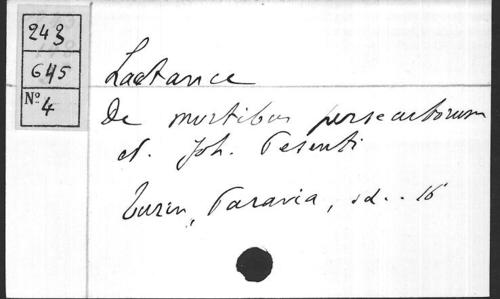 243
645
N° 4
Lactance
De mortibus persecutorum
ed. Joh. Pesenti
Turin, Paravia, sd.. 16